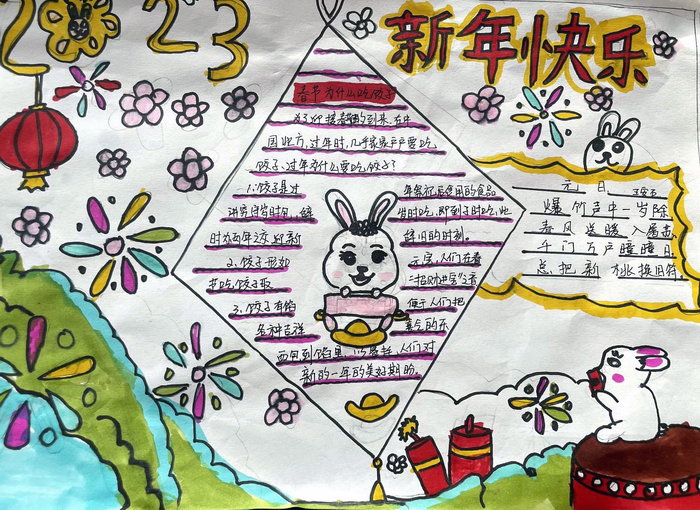 2023
新年快乐
春节为什么吃饺子
为了迎接春节的到来,在中
国北方,过年时,几乎家家户户要吃
饺子,过年为什么要吃饺子?
1.饺子是过
年祭祀后食用的食品
当时吃,即到子时吃,此
时为两年之交,迎新
辞旧的时刻。
2.饺子形如
元宝,人们在春
节吃饺子取
“招财进宝”之意
3.饺子有馅
便于人们把
各种吉祥
到馅里,以
人们对
新的一年的美好期盼
元日
爆竹声中一岁除
春风送暖入屠苏
千门万户曈曈日
总把新桃换旧符